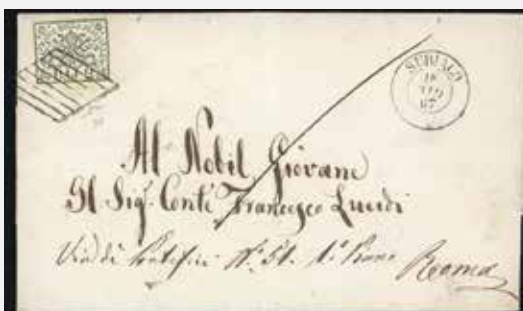 SUBIACO
18
67
Al Nobil Giovane
Il Sig.r Conte Francesco Lucidi
Via di Pontefici N.o 51. 1.o Piano
Roma